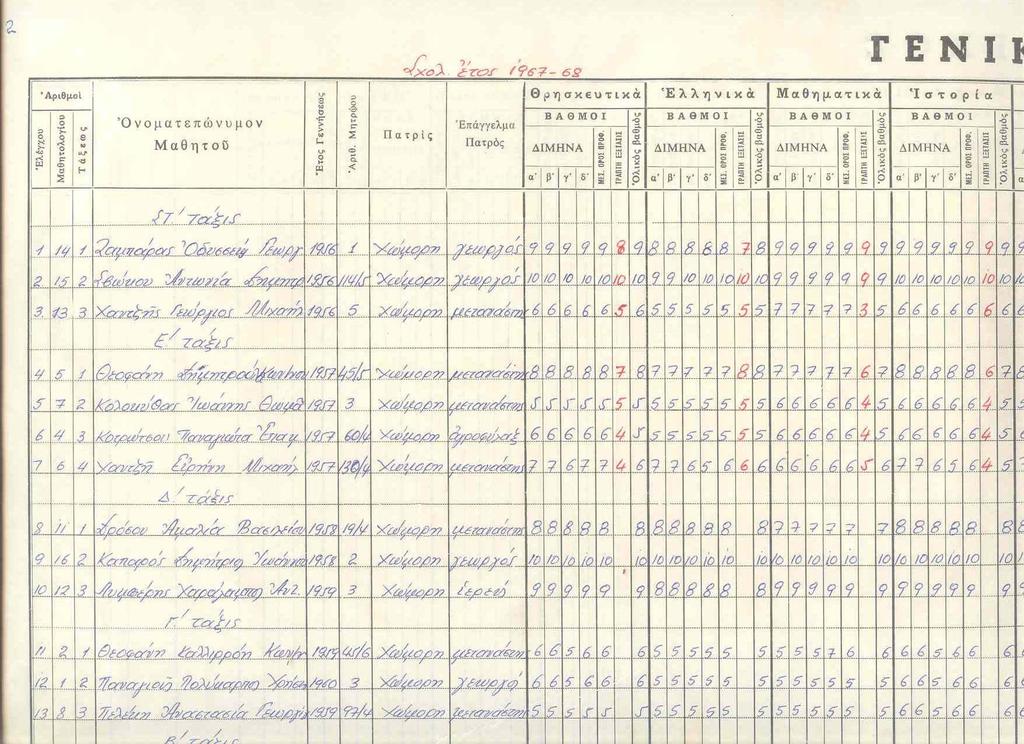 2
ΓΕΝΙΚ
Σχολ. έτος 1967-68
Ἀριθμοὶ
Ἐλέγχου Μαθητολογίου Τάξεως Ὀνοματεπώνυμον Μαθητοῦ Ἔτος Γεννήσεως Ἀριθ. Μητρῴου Πατρὶς Ἐπάγγελμα Πατρὸς
Θρησκευτικὰ Ἑλληνικὰ Μαθηματικὰ Ἱστορία
ΒΑΘΜΟΙ ΒΑΘΜΟΙ ΒΑΘΜΟΙ ΒΑΘΜΟΙ
ΔΙΜΗΝΑ ΜΕΣ. ΟΡΟΣ ΠΡΟΦ. ΓΡΑΠΤΗ ΕΞΕΤΑΣΙΣ Ὁλικὸς βαθμὸς ΔΙΜΗΝΑ ΜΕΣ. ΟΡΟΣ ΠΡΟΦ. ΓΡΑΠΤΗ ΕΞΕΤΑΣΙΣ Ὁλικὸς βαθμὸς ΔΙΜΗΝΑ ΜΕΣ. ΟΡΟΣ ΠΡΟΦ. ΓΡΑΠΤΗ ΕΞΕΤΑΣΙΣ Ὁλικὸς βαθμὸς ΔΙΜΗΝΑ ΜΕΣ. ΟΡΟΣ ΠΡΟΦ. ΓΡΑΠΤΗ ΕΞΕΤΑΣΙΣ Ὁλικὸς βαθμὸς
α' β' γ' δ' α' β' γ' δ' α' β' γ' δ' α' β' γ' δ'
ΣΤ' τάξις
1 14 1 Ζαμπάρας Ὀδυσσεύς Γεωργ. 1956 1 Χώμορη γεωργός 9 9 9 9 9 8 9 8 8 8 8 8 7 8 9 9 9 9 9 9 9 9 9 9 9 9 9 9
2 15 2 Ἀντωνία Δημητρ. 1956 114/5 Χώμορη γεωργός 10 10 10 10 10 10 10 9 9 10 10 10 10 10 9 9 9 9 9 9 9 10 10 10 10 10 10 10
3 13 3 Χαντζῆς Γεώργιος Μιχαήλ 1956 5 Χώμορη μετανάστης 6 6 6 6 6 5 6 5 5 5 5 5 5 5 7 7 7 7 7 3 5 6 6 6 6 6 6 6
Ε' τάξις
4 5 1 Θεοφάνη 1957 45/5 Χώμορη μετανάστης 8 8 8 8 8 7 8 7 7 7 7 7 8 8 7 7 7 7 7 6 7 8 8 8 8 8 6 7
5 7 2 Κολοκύθας Ἰωάννης Θωμᾶ 1957 3 Χώμορη μετανάστης 5 5 5 5 5 5 5 5 5 5 5 5 5 5 6 6 6 6 6 4 5 6 6 6 6 6 4 5
6 4 3 Κοτρώτσου Παναγιώτα 1957 60/4 Χώμορη ἀγροφύλαξ 6 6 6 6 6 4 5 5 5 5 5 5 5 5 6 6 6 6 6 4 5 6 6 6 6 6 4 5
7 6 4 Χαντζῆ Εἰρήνη Μιχαήλ 1957 130/4 Χώμορη μετανάστης 7 7 6 7 7 4 6 7 7 6 5 6 6 6 6 6 6 6 6 5 6 7 7 6 5 6 4 5
Δ' τάξις
8 11 1 Δρόσου Ἀμαλία Βασιλείου 1958 19/4 Χώμορη μετανάστης 8 8 8 8 8 8 8 8 8 8 8 8 7 7 7 7 7 7 8 8 8 8 8 8
9 16 2 Καπαρός Δημήτριος Ἰωάννου 1958 2 Χώμορη γεωργός 10 10 10 10 10 10 10 10 10 10 10 10 10 10 10 10 10 10 10 10 10 10 10 10
10 12 3 Λυμπέρης Χαράλαμπος Ἀντ. 1959 3 Χώμορη ἱερεύς 9 9 9 9 9 9 8 8 8 8 8 8 9 9 9 9 9 9 9 9 9 9 9 9
Γ' τάξις
11 2 1 Θεοφάνη Καλλιρρόη 1959 45/6 Χώμορη μετανάστης 6 6 5 6 6 6 5 5 5 5 5 5 5 5 5 7 6 6 6 6 5 6 6 6
12 1 2 Πολύκαρπος Χρήστ. 1960 3 Χώμορη γεωργός 6 6 5 6 6 6 5 5 5 5 5 5 5 5 5 5 5 5 6 6 5 6 6 6
13 8 3 Πελέκη Ἀναστασία Γεωργίου 1959 97/4 Χώμορη μετανάστης 5 5 5 5 5 5 5 5 5 5 5 5 5 5 5 5 5 5 6 6 5 6 6 6
Β' τάξις